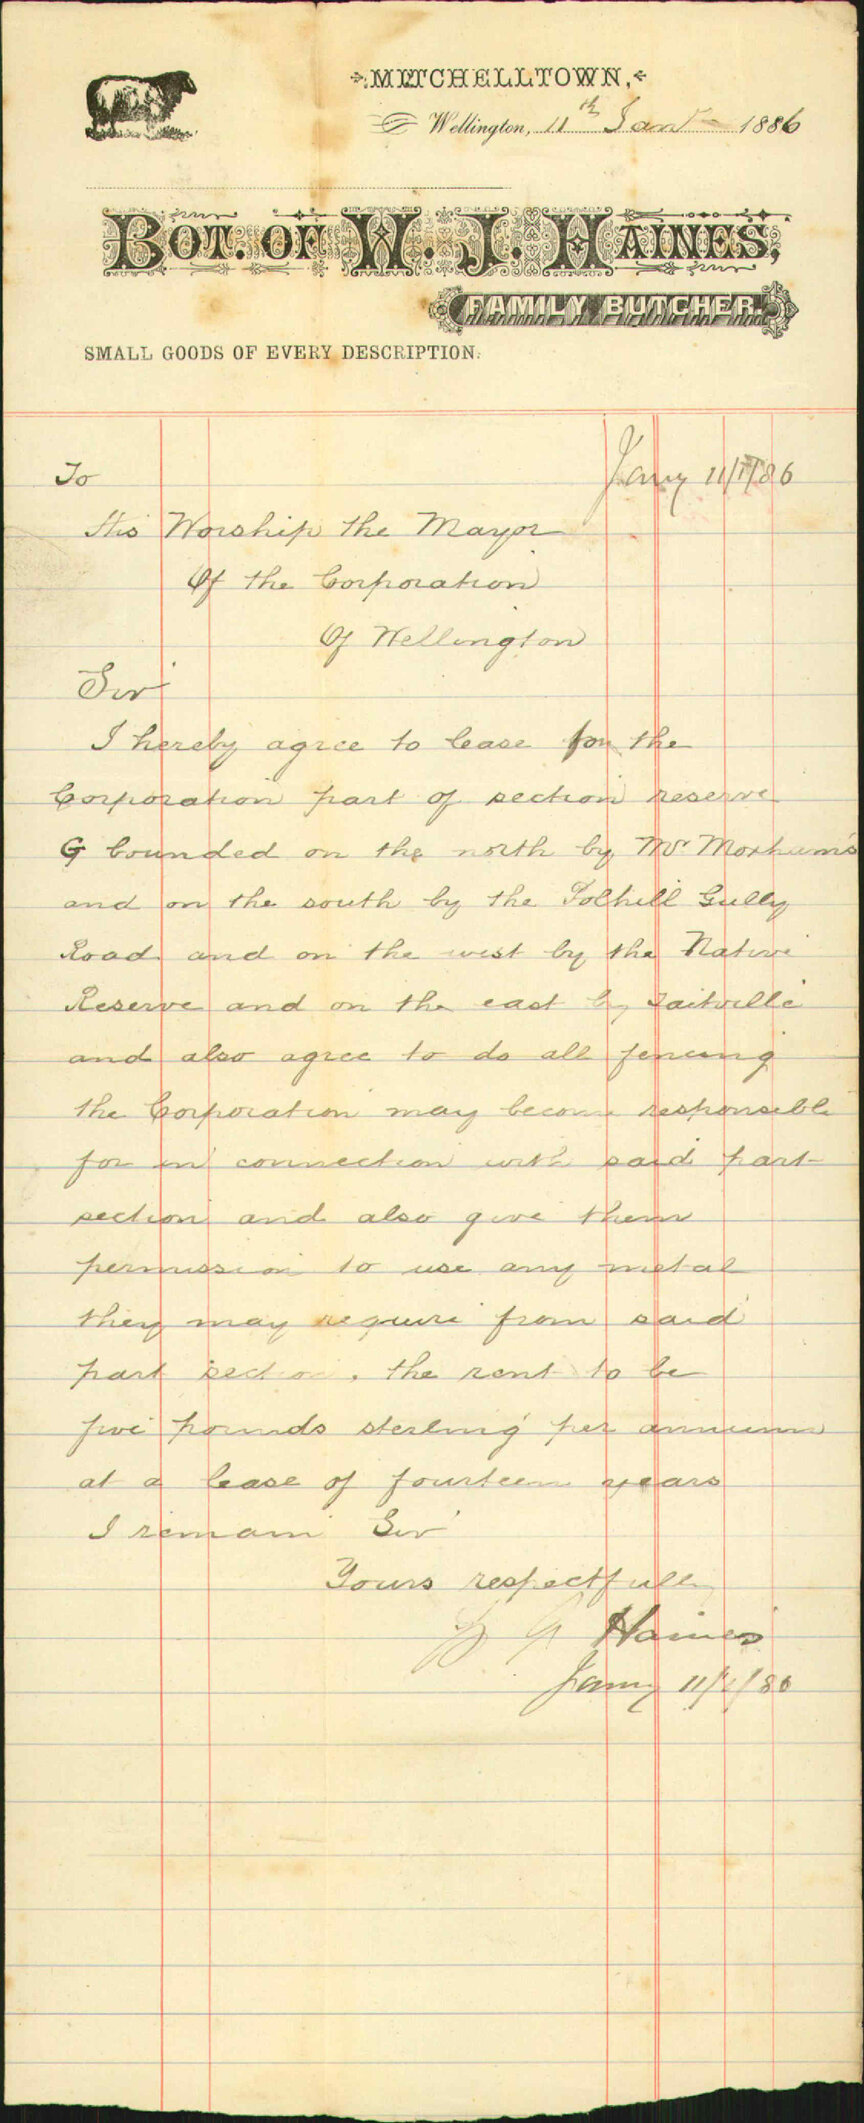 MITCHELLTOWN,
Wellington, 11th Jany 1886
BOT. OF W. J. HAINES,
FAMILY BUTCHER.
SMALL GOODS OF EVERY DESCRIPTION.
Jany 11/1/86
To
His Worship the Mayor
Of the Corporation
Of Wellington
Sir
I hereby agree to lease from the
Corporation part of section reserve
G bounded on the north by Mr Moxham's
and on the south by the Polhill Gully
Road and on the west by the Native
Reserve and on the east by Taitville
and also agree to do all fencing
the Corporation may become responsible
for in connection with said part
section and also give them
permission to use any metal
they may require from said
part section, the rent to be
five pounds sterling per annum
at a lease of fourteen years
I remain Sir
Yours respectfully
Haines
Jany 11/1/86